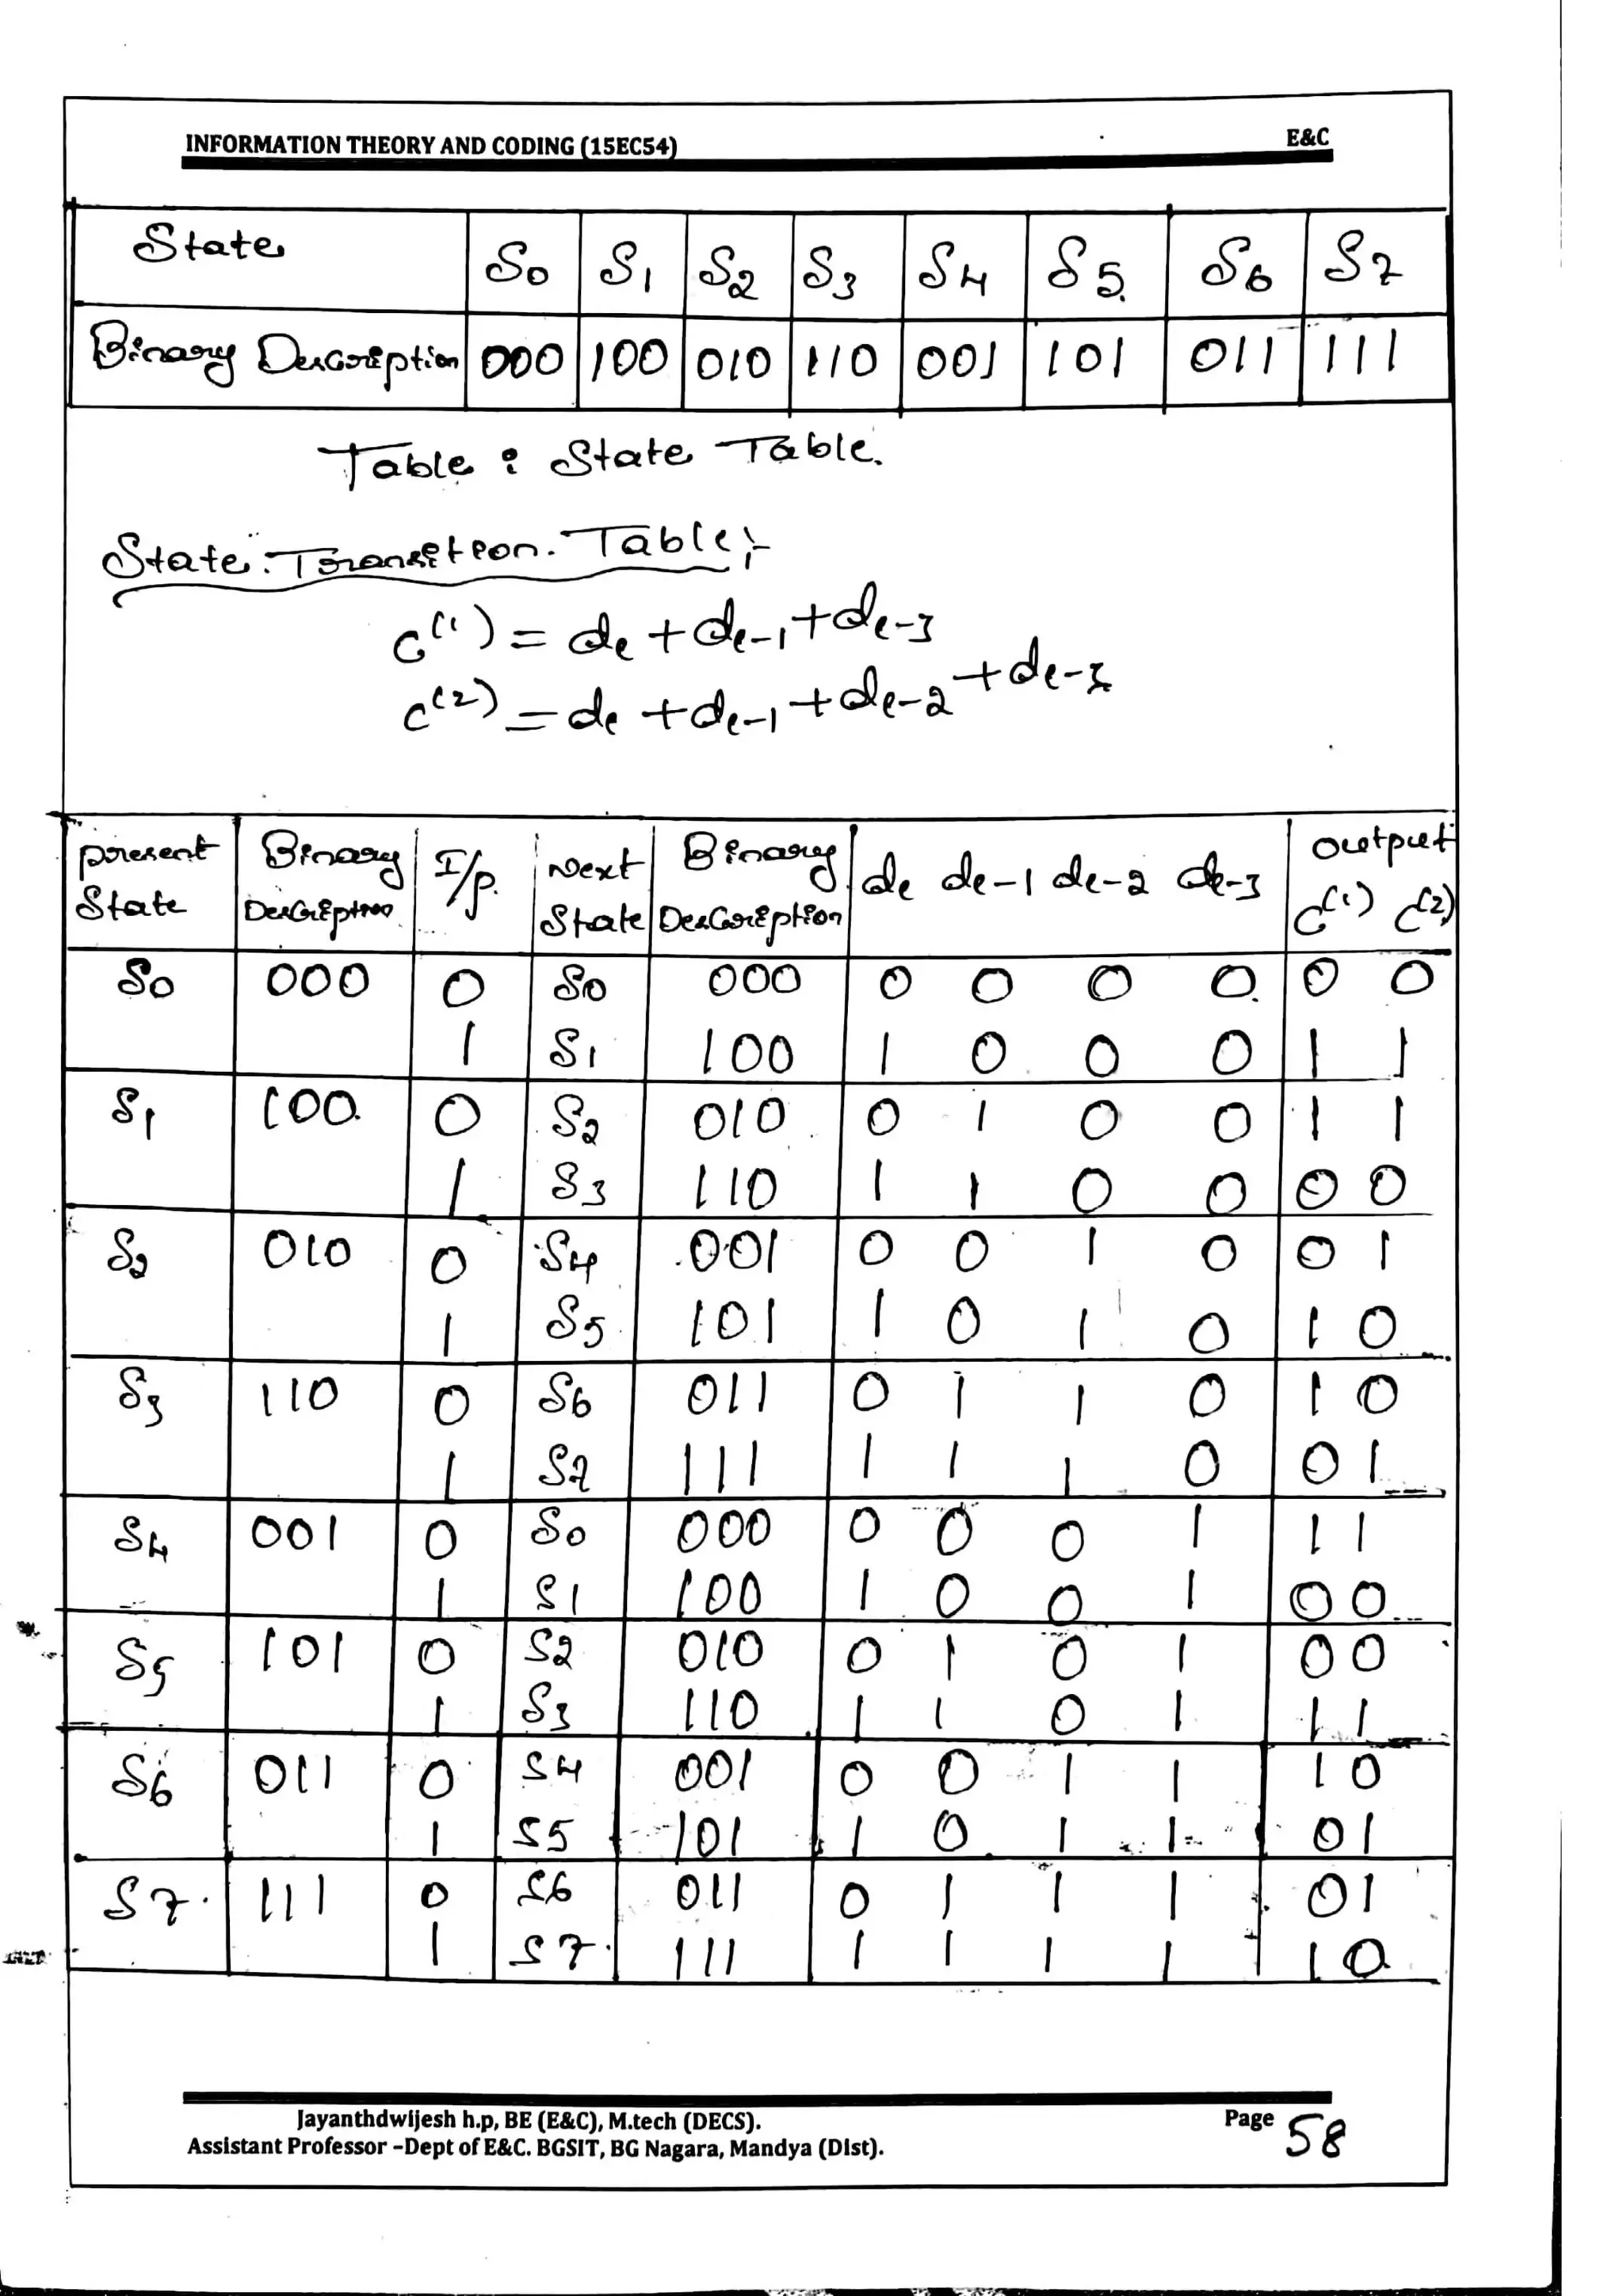 INFORMATION THEORY AND CODING (15EC54) E&C
State S0 S1 S2 S3 S4 S5 S6 S7
Binary Description 000 100 010 110 001 101 011 111
Table : State Table.
State Transition Table:-
C(1) = dl + dl-1 + dl-3
C(2) = dl + dl-1 + dl-2 + dl-3
present State Binary Description I/p. Next State Binary Description dl dl-1 dl-2 dl-3 output C(1) C(2)
S0 000 0 S0 000 0 0 0 0 0 0
1 S1 100 1 0 0 0 1 1
S1 100 0 S2 010 0 1 0 0 1 1
1 S3 110 1 1 0 0 0 0
S2 010 0 S4 001 0 0 1 0 0 1
1 S5 101 1 0 1 0 1 0
S3 110 0 S6 011 0 1 1 0 1 0
1 S7 111 1 1 1 0 0 1
S4 001 0 S0 000 0 0 0 1 1 1
1 S1 100 1 0 0 1 0 0
S5 101 0 S2 010 0 1 0 1 0 0
1 S3 110 1 1 0 1 1 1
S6 011 0 S4 001 0 0 1 1 1 0
1 S5 101 1 0 1 1 0 1
S7 111 0 S6 011 0 1 1 1 0 1
1 S7 111 1 1 1 1 1 0
Jayanthdwijesh h.p, BE (E&C), M.tech (DECS). Page 58
Assistant Professor –Dept of E&C. BGSIT, BG Nagara, Mandya (Dist).